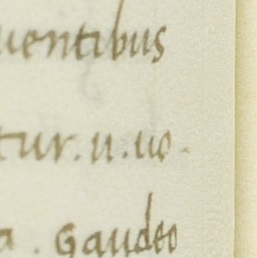 uentibus
tur.u.uo.
a. Gaudeo